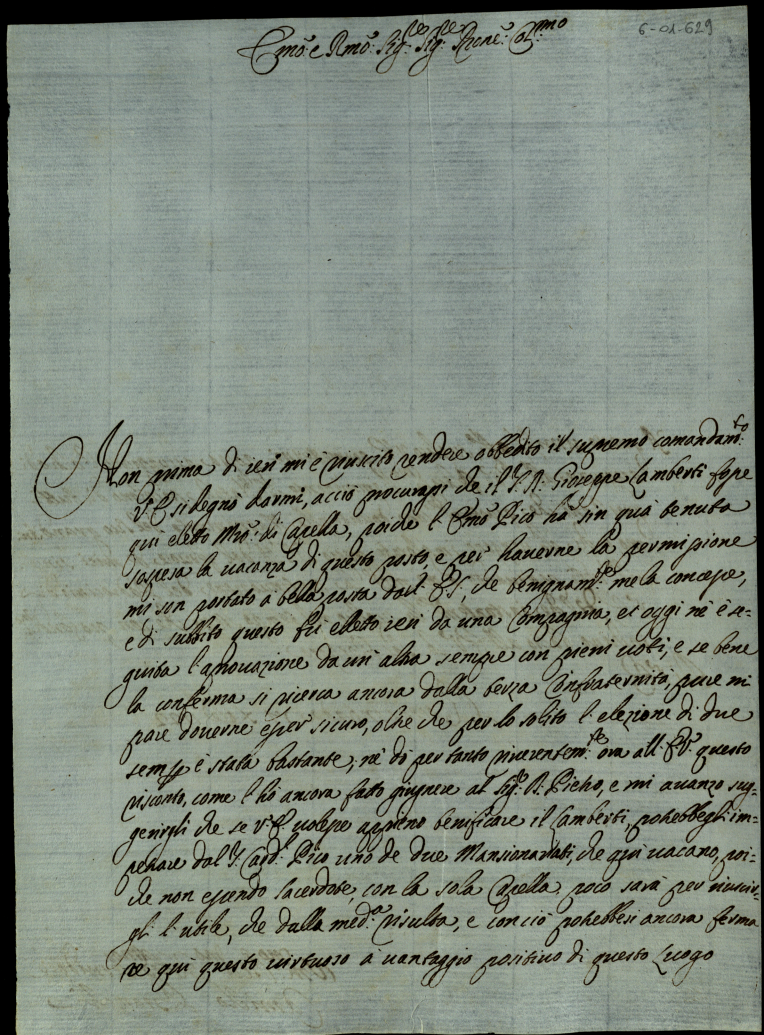 6-01-629
Emo: e Rmo: Sigre Sigre Prone: Colmo
Non prima di ieri mi è riuscito rendere obbedito il supremo comandamto:
V: E: si degnò darmi, acciò procurassi che il S: D: Gioseppe Lamberti fosse
qui eletto Mro: di Capella, poiche l'Emo: Pico hà sin quà tenuta
sospesa la vacanza di questo posto, e per haverne la permissione
mi son portato à bella posta dall' E: S:, che benignamte: me la concesse,
e di subbito questo fù eletto ieri da una Compagnia, et oggi nè è se-
guita l'approvazione da un' altra sempre con pieni voti, e se bene
la conferma si ricerca ancora dalla terza Confraternità, pure mi
pare doverne esser sicuro, oltre che per lo solito l'elezione di due
sempre è stata bastante; nè dò per tanto riverentemte: ora all' E: V: questo
riscontro, come l'hò ancora fatto giugnere al Sigre: D: Pietro, e mi avanzo sug-
gerirgli che se V: E: volesse appieno benificare il Lamberti, potrebbegli im-
petrare dal S: Cardl: Pico uno de due Mansionariati, che quì vacano, poi-
che non essendo sacerdote, con la sola Capella poco sarà per riuscir-
gli l'utile, che dalla meda: risulta, e con ciò potrebbesi ancora ferma
re quì questo virtuoso à vantaggio positivo di questo Luogo